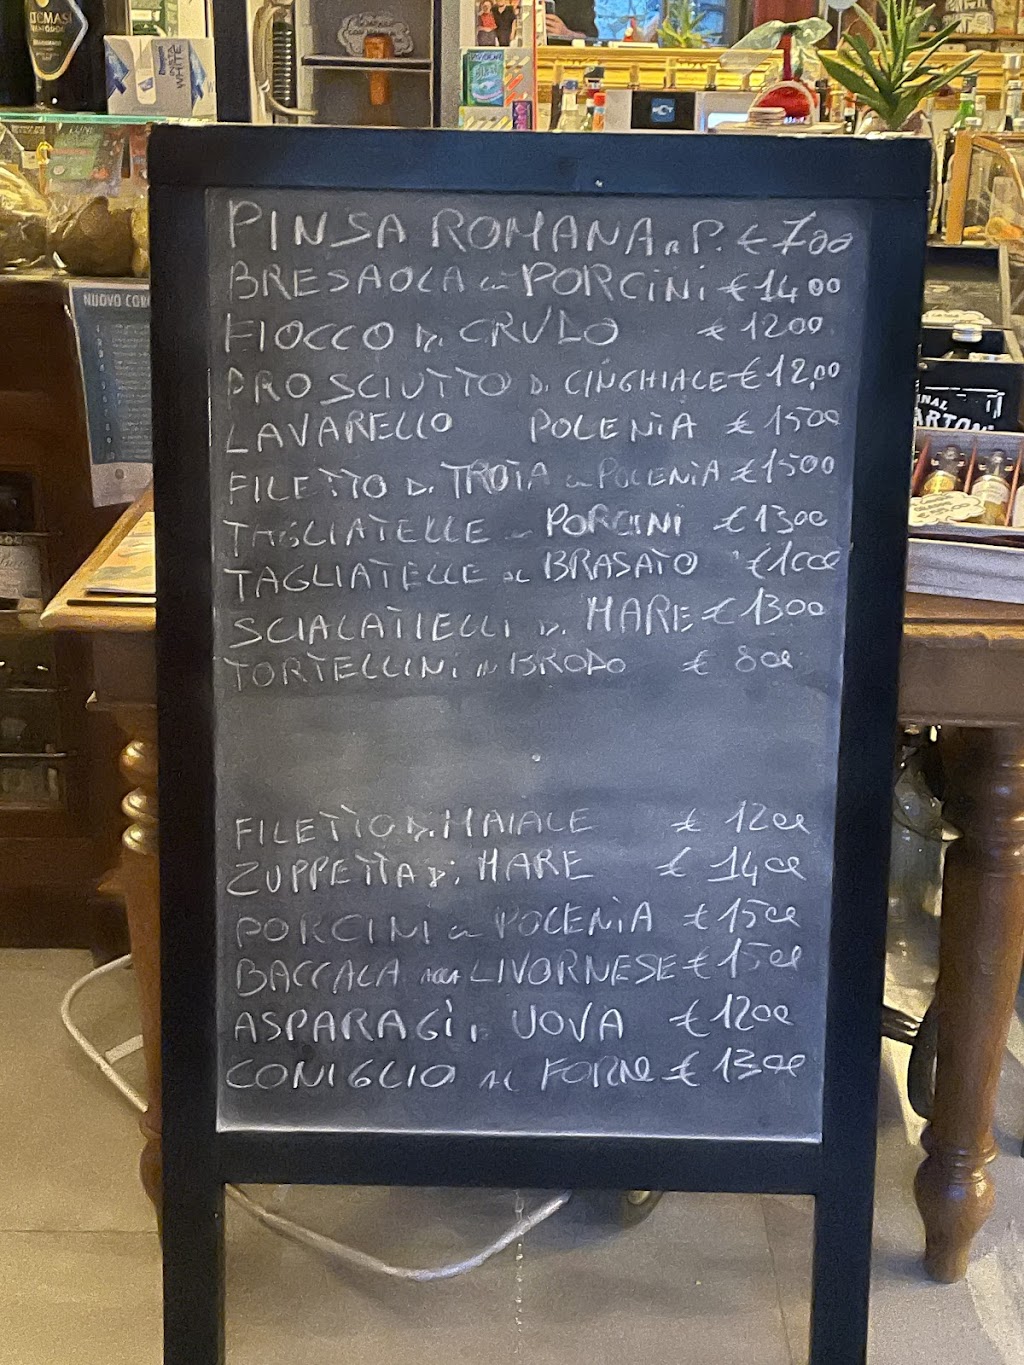 PINSA ROMANA A P. € 700
BRESAOLA CON PORCINI € 14 00
FIOCCO DI CRUDO € 1200
PROSCIUTTO DI CINGHIALE € 12,00
LAVARELLO POLENTA € 1500
FILETTO DI TROTA CON POLENTA € 1500
TAGLIATELLE PORCINI € 1300
TAGLIATELLE AL BRASATO € 1000
SCIALATIELLI DI MARE € 1300
TORTELLINI IN BRODO € 800
FILETTO DI MAIALE € 1200
ZUPPETTA DI MARE € 1400
PORCINI CON POLENTA € 1500
BACCALA ALLA LIVORNESE € 1500
ASPARAGI E UOVA € 1200
CONIGLIO AL FORNO € 1300
NUOVO
WHITE